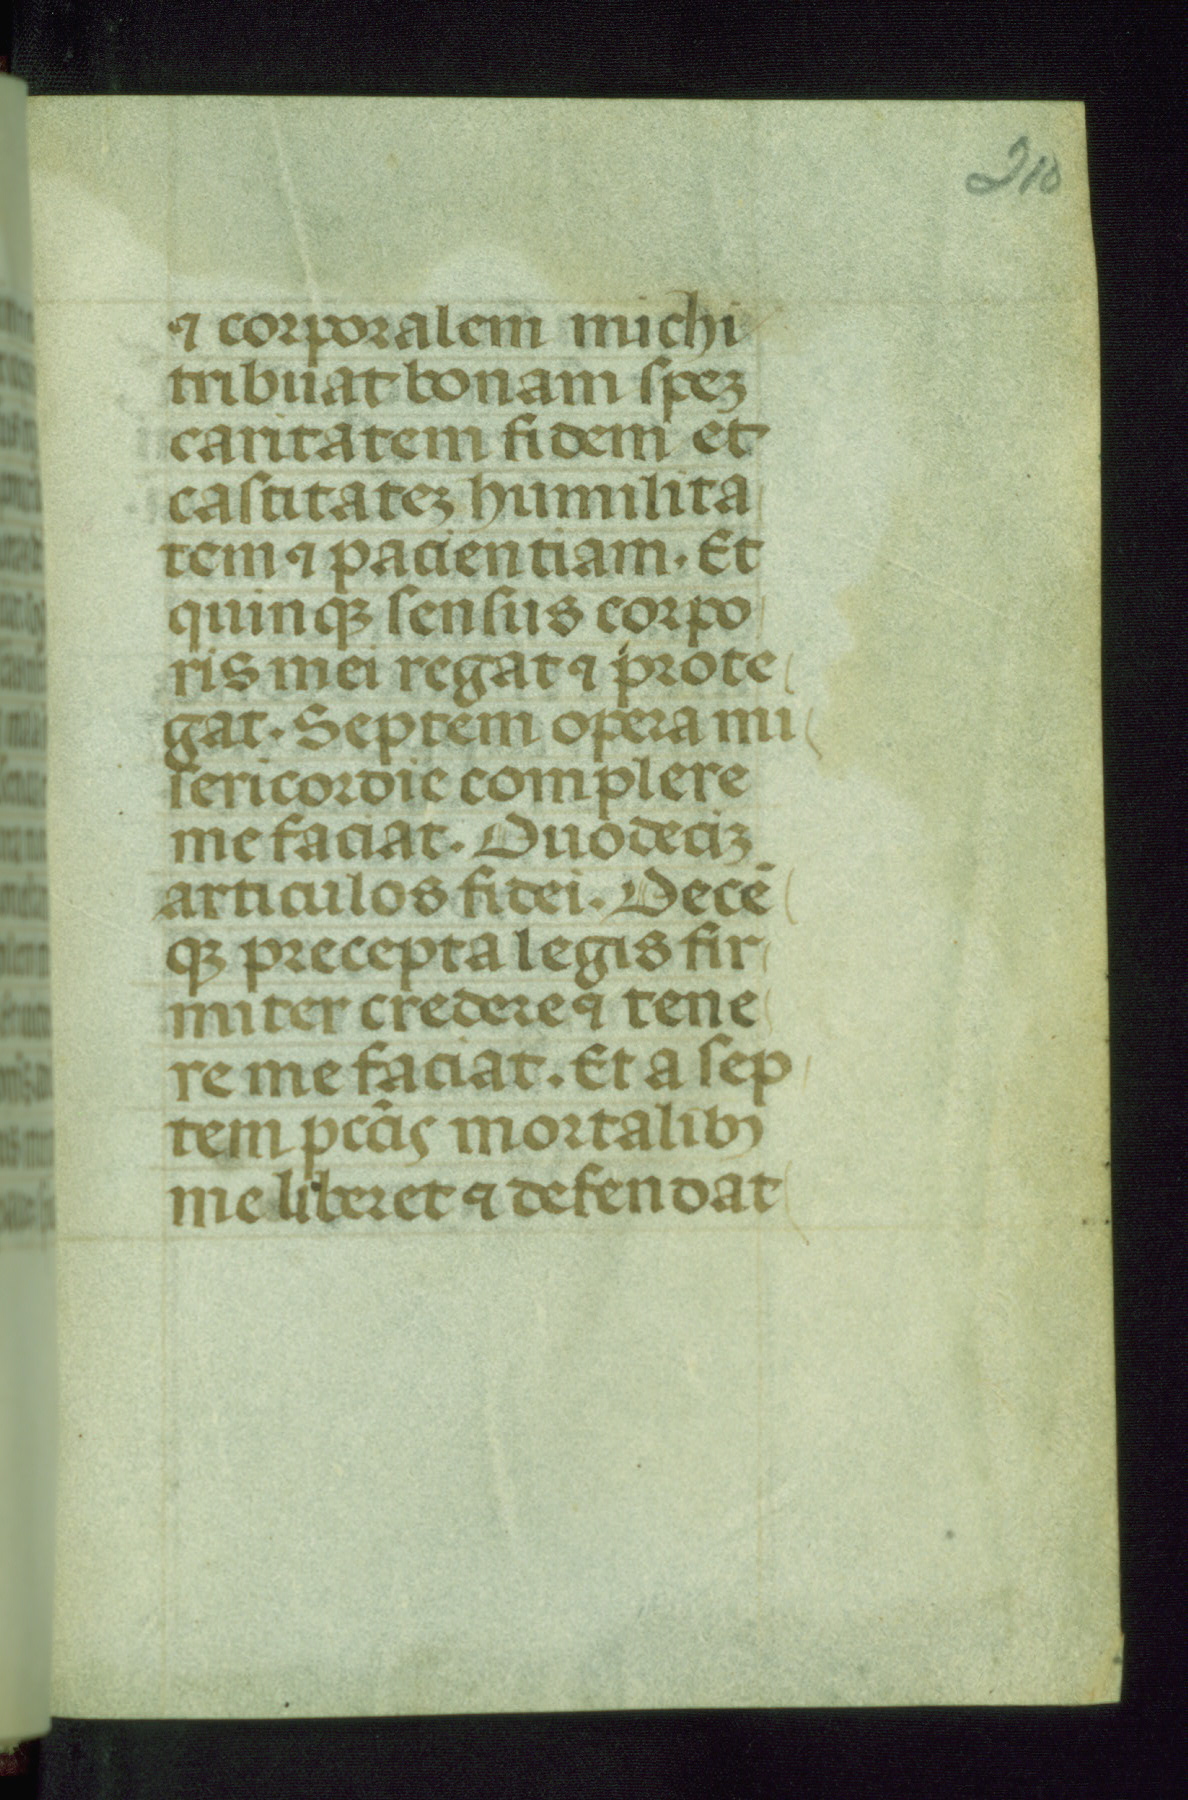 210
⁊ corporalem michi
tribuat bonam speꝫ
caritatem fidem et
castitateꝫ humilita
tem ⁊ pacientiam. Et
quinqꝫ sensus corpo
ris mei regat ⁊ prote
gat. Septem opera mi
sericordie complere
me faciat. Duodeciꝫ
articulos fidei. Decē
qꝫ precepta legis fir
miter credere ⁊ tene
re me faciat. Et a sep
tem pccīs mortalibꝫ
me liberet ⁊ defendat